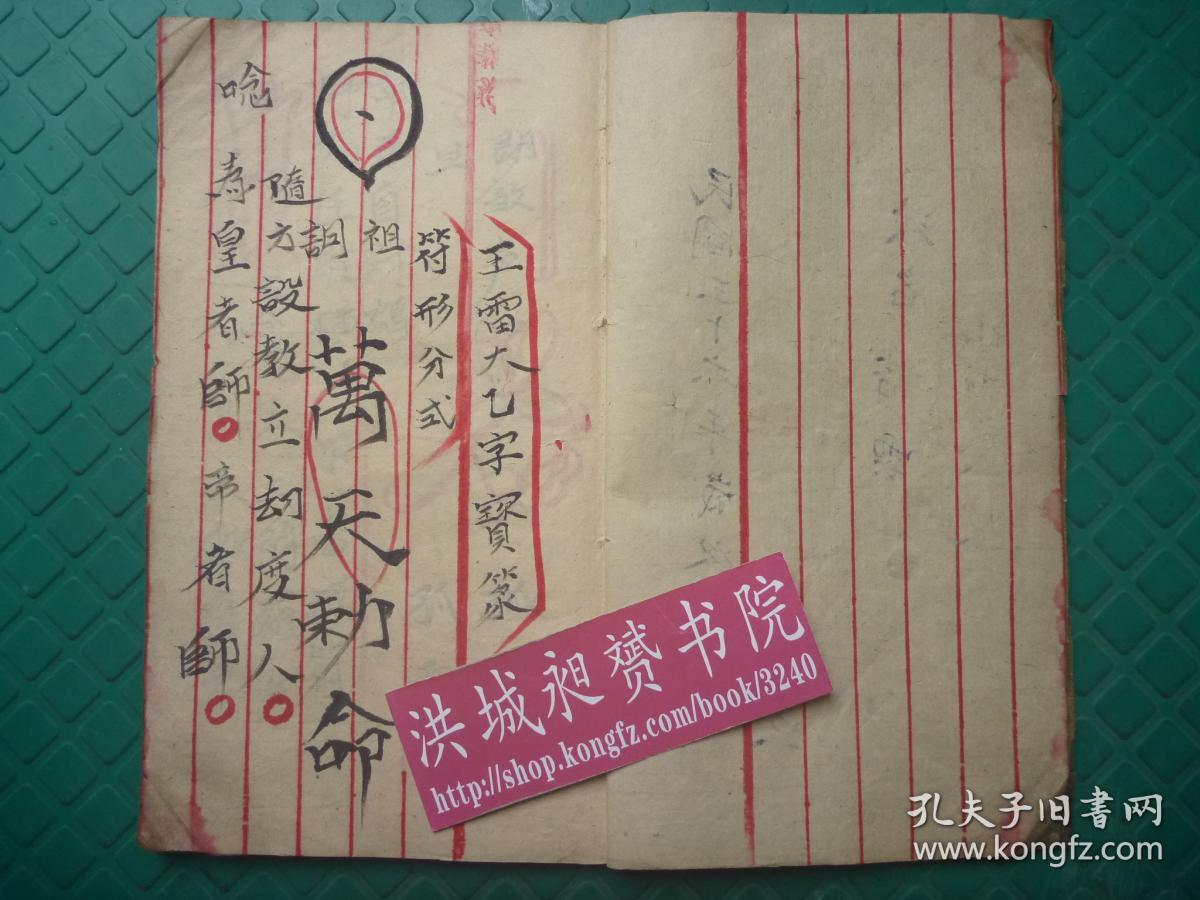 王雷大乙字寳篆
符形分式
祖
詞
萬天勅命
隨方設教立劫度人
唸
為皇者師帝者師
民國
年
洪城昶赟书院
http://shop.kongfz.com/book/3240
孔夫子旧書网
www.kongfz.com